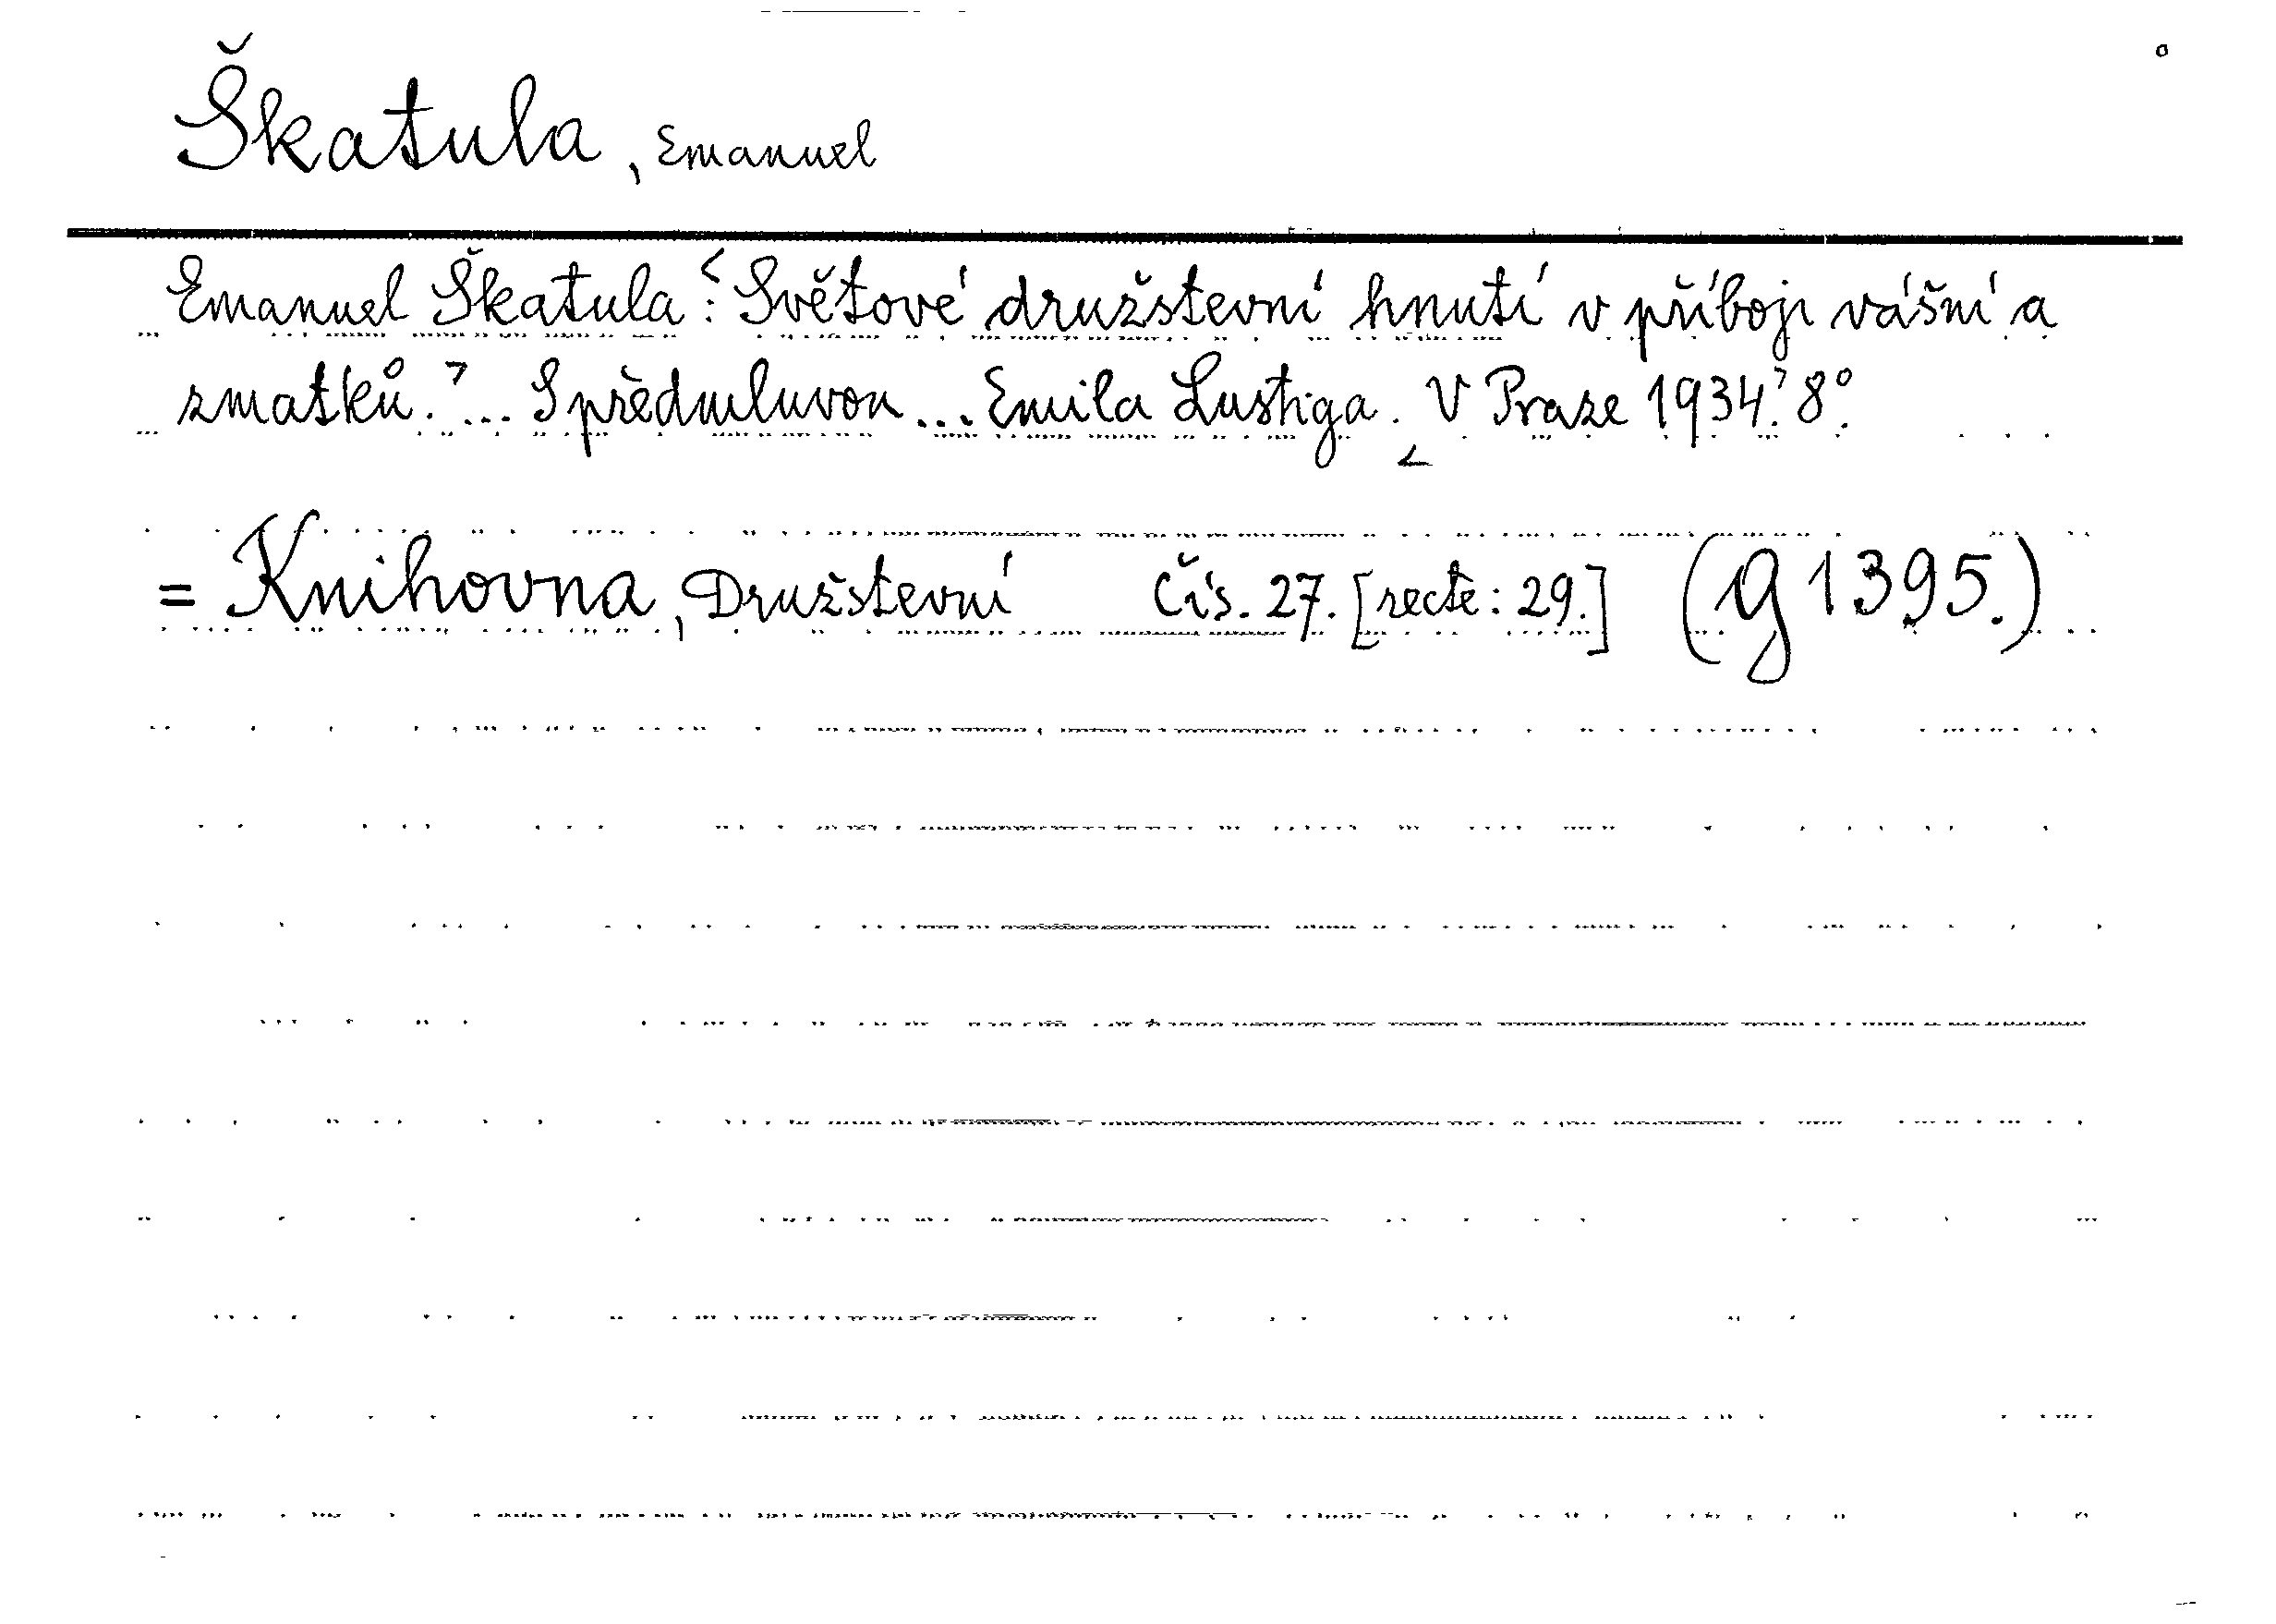 Škatula, Emanuel
Emanuel Škatula: <Světové družstevní hnutí v příboji vášní a
zmatků.> ... S předmluvou ... Emila Lustiga. <V Praze 1934.> 8°.
= Knihovna, Družstevní Čís. 27. [recte: 29.] (g 1395.)